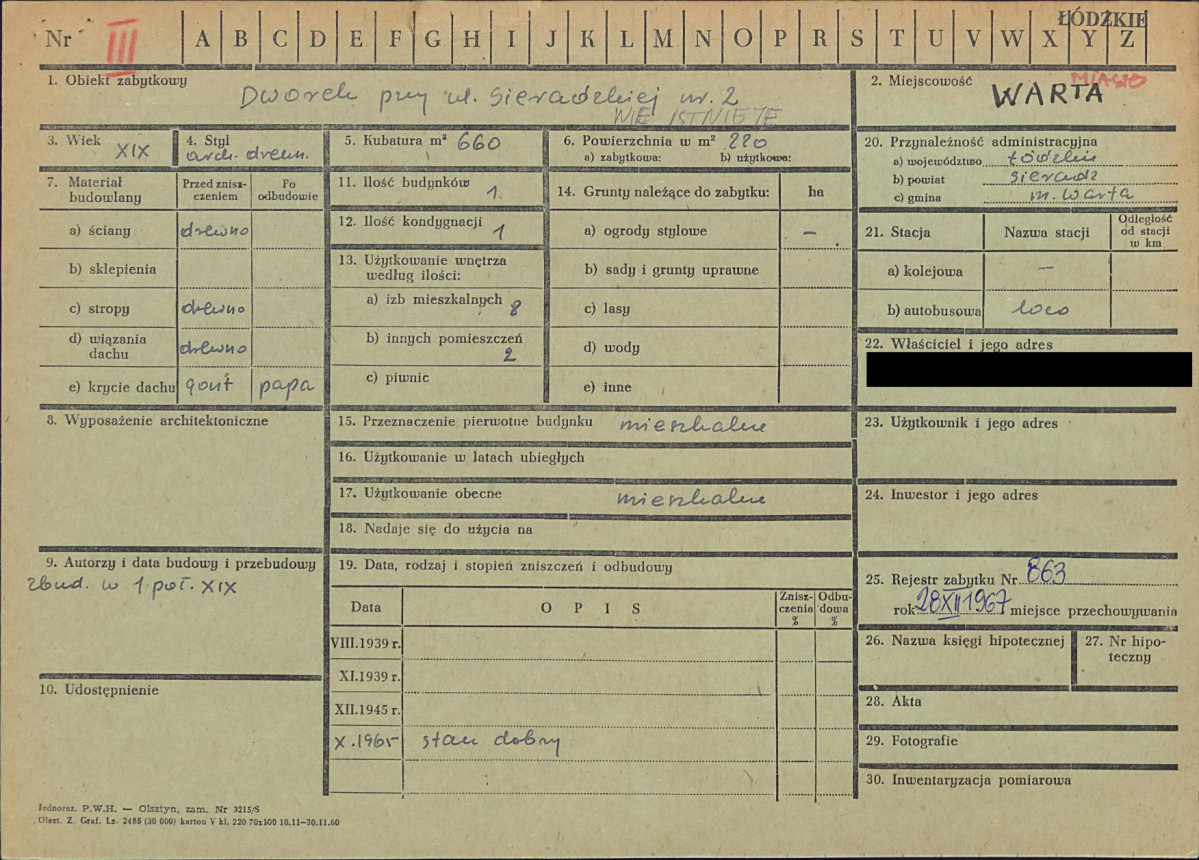 ŁÓDZKIE
Nr III A B C D E F G H I J K L M N O P R S T U V W X Y Z
1. Obiekt zabytkowy
Dworek przy ul. Sieradzkiej nr. 2
NIE ISTNIEJE
2. Miejscowość
MIASTO
WARTA
3. Wiek
XIX
4. Styl
arch. drewn.
5. Kubatura m³ 660
6. Powierzchnia w m² 220
a) zabytkowa: b) użytkowa:
20. Przynależność administracyjna
a) województwo łódzkie
b) powiat sieradz
c) gmina m. Warta
7. Materiał budowlany
Przed zniszczeniem
Po odbudowie
a) ściany drewno
b) sklepienia
c) stropy drewno
d) wiązania dachu drewno
e) krycie dachu gont papa
11. Ilość budynków 1.
12. Ilość kondygnacji 1
13. Użytkowanie wnętrza
według ilości:
a) izb mieszkalnych 8
b) innych pomieszczeń 2
c) piwnic
14. Grunty należące do zabytku: ha
a) ogrody stylowe –
b) sady i grunty uprawne
c) lasy
d) wody
e) inne
21. Stacja Nazwa stacji
Odległość
od stacji
w km
a) kolejowa –
b) autobusowa loco
22. Właściciel i jego adres
8. Wyposażenie architektoniczne
15. Przeznaczenie pierwotne budynku mieszkalne
16. Użytkowanie w latach ubiegłych
17. Użytkowanie obecne mieszkalne
18. Nadaje się do użycia na
23. Użytkownik i jego adres
24. Inwestor i jego adres
9. Autorzy i data budowy i przebudowy
zbud. w 1 poł. XIX
10. Udostępnienie
19. Data, rodzaj i stopień zniszczeń i odbudowy
Data OPIS Zniszczenia % Odbudowa %
VIII.1939 r.
XI.1939 r.
XII.1945 r.
X.1965 stan dobry
25. Rejestr zabytku Nr 863
rok 28 XII 1967 miejsce przechowywania
26. Nazwa księgi hipotecznej
27. Nr hipoteczny
28. Akta
29. Fotografie
30. Inwentaryzacja pomiarowa
Jednoraz. P.W.H. — Olsztyn, zam. Nr 3215/S
Olszt. Z. Graf. Lz. 2485 (30 000) karton V kl. 220 70x100 10.11—30.11.60